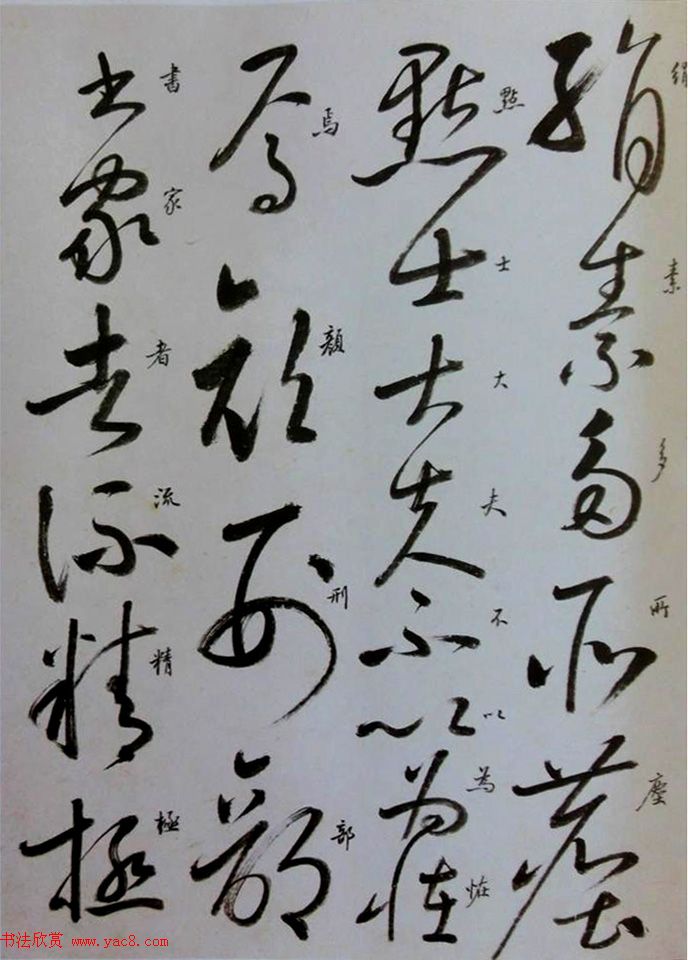 絹素多所塵
點士大夫不以為恠
焉顏刑部
書家者流精極
书法欣赏 www.yac8.com